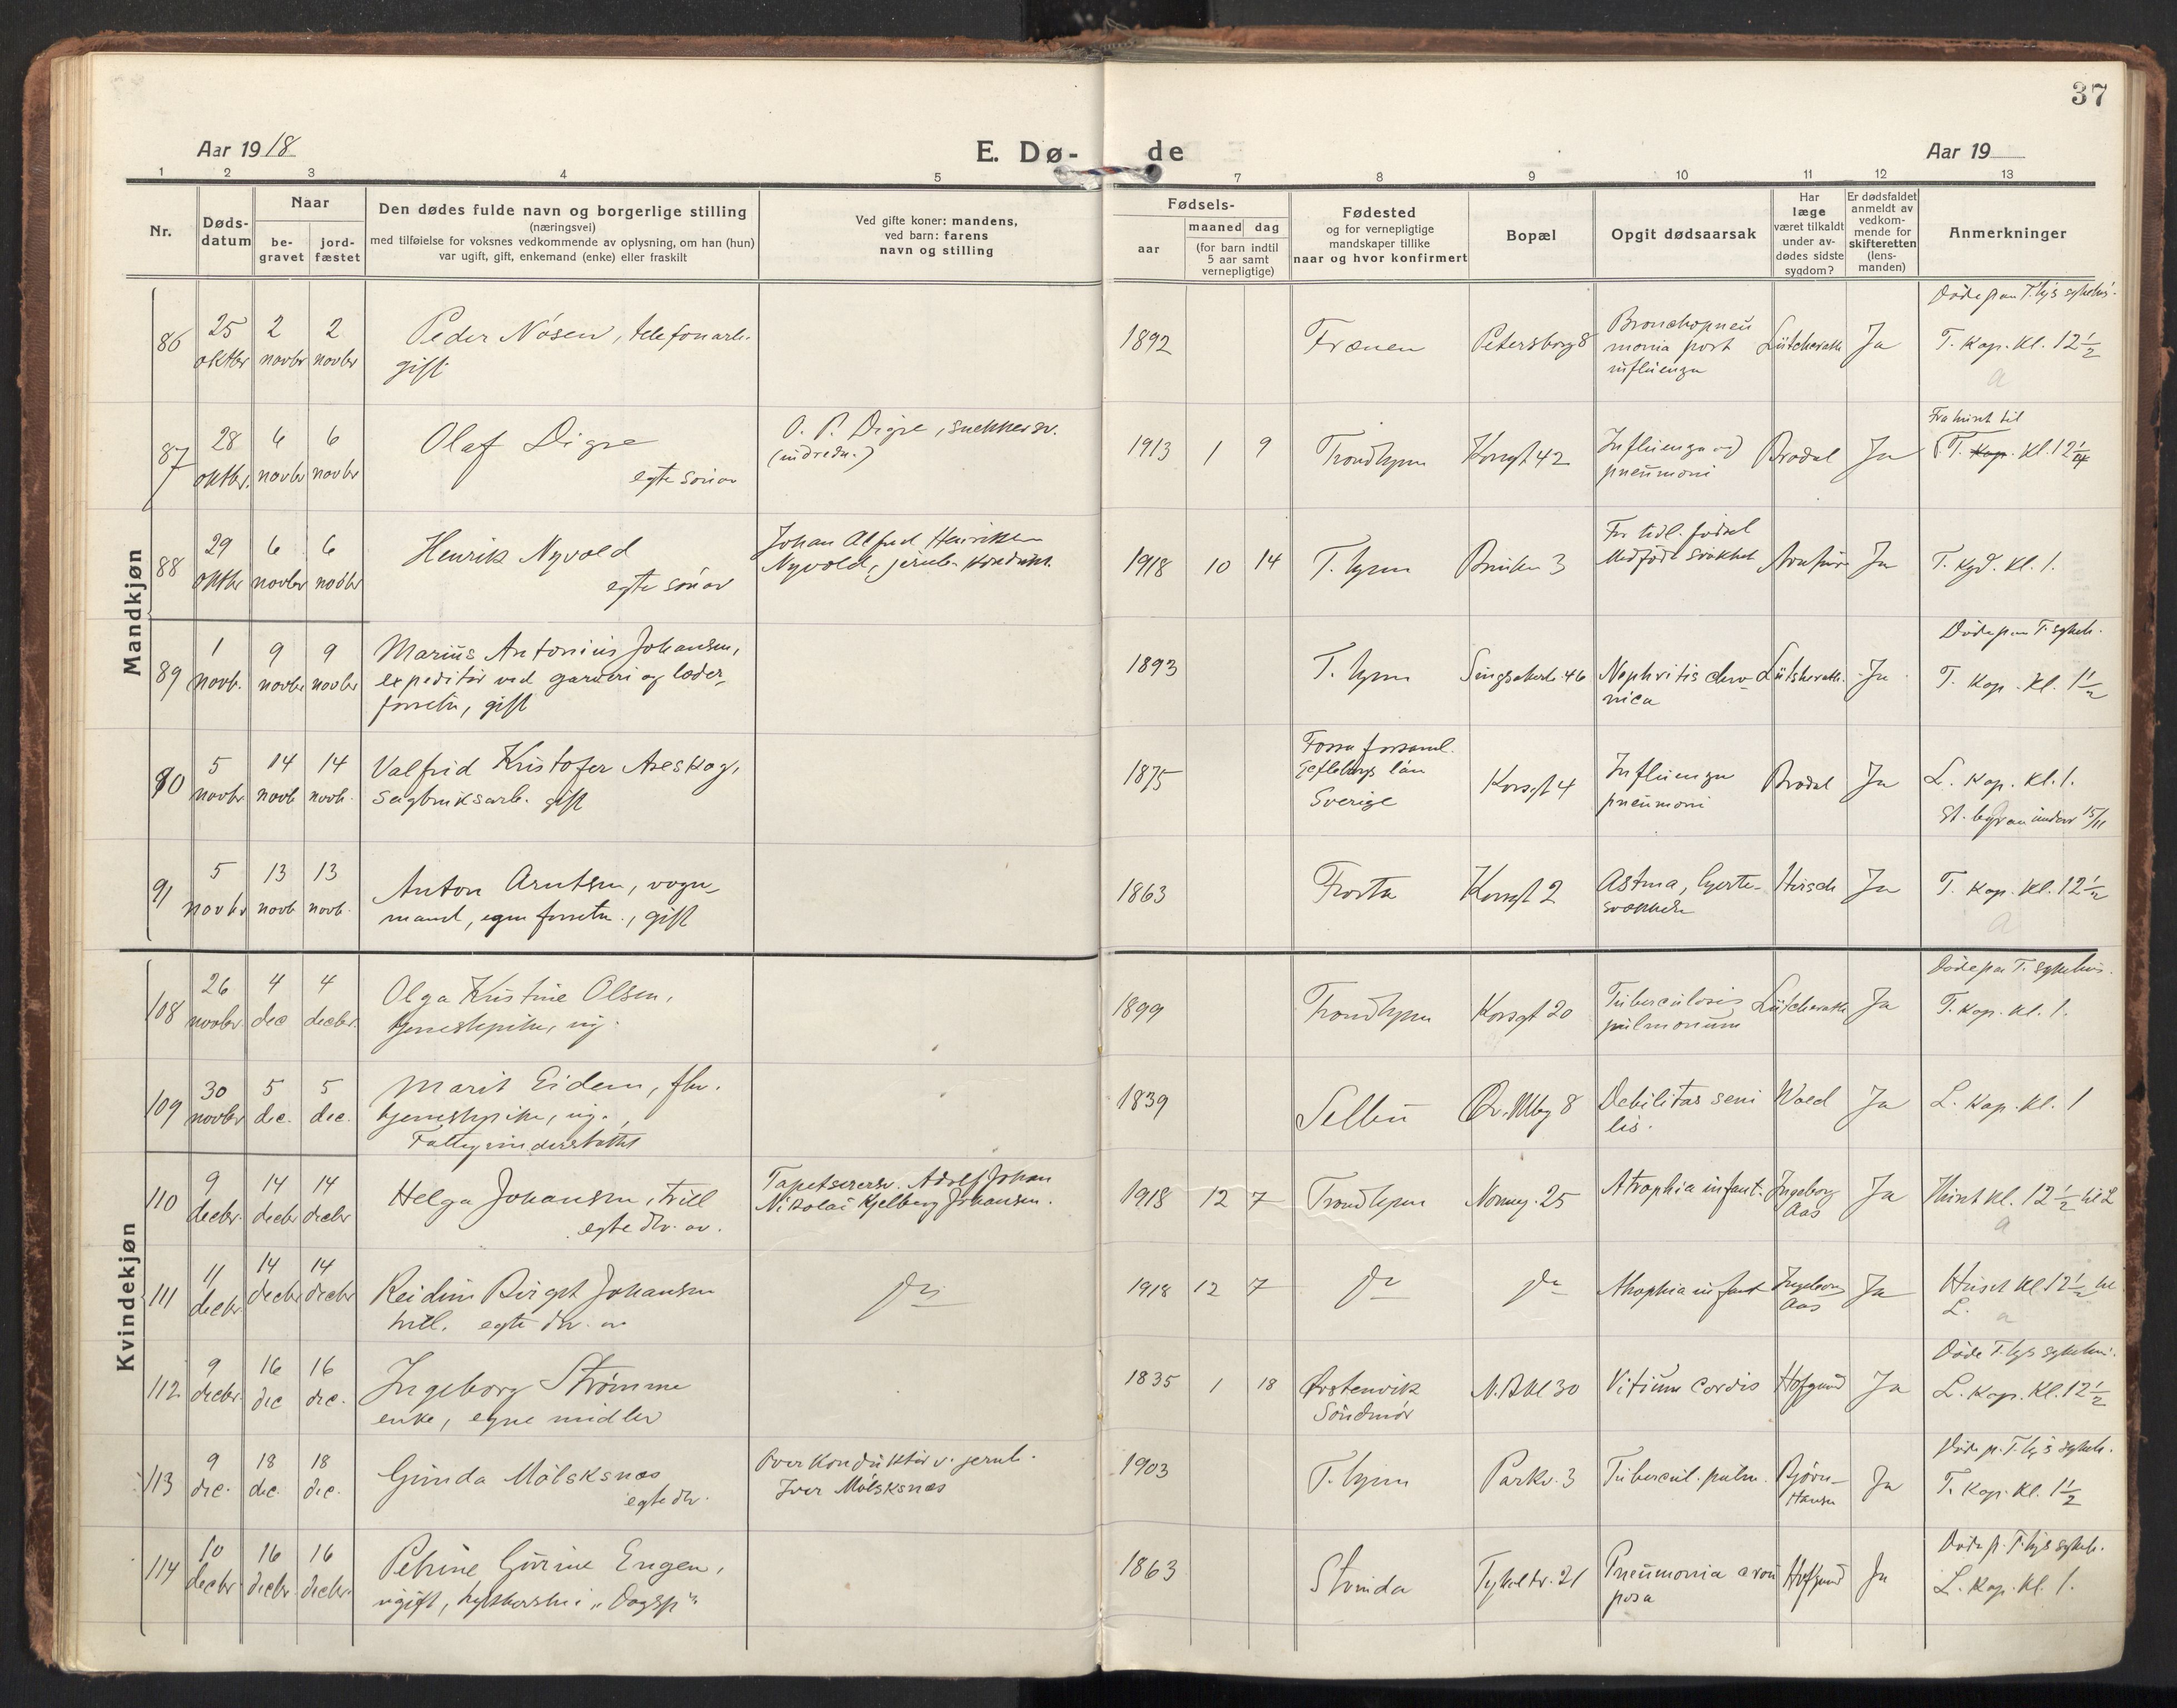 37
Aar 1918
E. Dø-
de
Aar 19
1 2 3 4 5 7 8 9 10 11 12 13
Nr.
Døds-
datum
Naar
be-
gravet
jord-
fæstet
Den dødes fulde navn og borgerlige stilling
(næringsvei)
med tilføielse for voksnes vedkommende av oplysning, om han (hun)
var ugift, gift, enkemand (enke) eller fraskilt
Ved gifte koner: mandens,
ved barn: farens
navn og stilling
Fødsels-
aar
maaned dag
(for barn indtil
5 aar samt
vernepligtige)
Fødested
og for vernepligtige
mandskaper tillike
naar og hvor konfirmert
Bopæl
Opgit dødsaarsak
Har
læge
været tilkaldt
under av-
dødes sidste
sygdom?
Er dødsfaldet
anmeldt av
vedkom-
mende for
skifteretten
(lens-
manden)
Anmerkninger
Mandkjøn
86 25 oktbr 2 novbr 2 novbr
Peder Nøsen, telefonarb.
gift
1892 Frænen Petersborg 8
Bronchopneu
monia post
influenza
Lütcherath Ja
T. kap. kl. 12½
87 28 oktbr. 6 novbr 6 novbr
Olaf Digre
egte søn av
O. P. Digre, snekkersv.
1913 1 9 Trondhjem Korsgt 42
Influenza og
pneumoni
Brodal Ja
Fra huset til
T. kap. kl. 12¼
88 29 oktbr 6 novbr 6 novbr
Henrik Nyvold
egte søn av
Johan Alfred Henriksen
Nyvold, jernb. konduktr.
1918 10 14 T.hjem 3
For tidl. fødsel
Medfødt svakhet
Ja
T. kgd. kl. 1.
89 1 novb. 9 novbr 9 novbr
Marius Antonius Johansen,
expeditør ved garveri og læder-
forretn, gift
1893 T.hjem Singsakerb. 46
Nephritis chro-
nica
Lütcherath. Ja
Døde paa T. sykeh.
T. kap. kl. 1½
90 5 novbr 14 novb 14 novb.
Valfrid Kristofer Aseskog,
sagbruksarb. gift
1875
Gefleborgs län
Sverige
Korsgt 4
Influenza
pneumoni
Brodal Ja
L. kap. kl. 1.
15/11
91 5 novbr 13 novb 13 novb.
Anton Arntsen, vogn-
mand, egen forretn., gift
1863 Frosta Korsgt 2
Astma, hjerte-
svækkelse
Hirsch Ja
T. kap. kl. 12½
Kvindekjøn
108 26 novbr 4 dec 4 decbr.
Olga Kristine Olsen,
tjenestepike, ug.
1899 Trondhjem Korsgt 20
Tuberculosis
pulmonum
Lütcherath Ja
Døde paa T. sykehus.
T. kap. kl. 1.
109 30 novbr 5 dec. 5 dec.
Marit Eidem, fhv.
tjenestepike, ug.
Fattigunderstøttet
1839 Selbu Ø. Mbg 8
Debilitas seni
lis.
Wold Ja
L. kap. kl. 1
110 9 decbr. 14 decbr 14 decbr
Helga Johansen, tvill
egte dtr. av.
Tapetserersv. Adolf Johan
Nikolai Kjelberg Johansen.
1918 12 7 Trondhjem Nonneg. 25
Atrophia infant.
Ingeborg
Aas
Ja
Huset kl. 12½ til L
a
111 11 decbr 14 decbr 14 decbr
Reidun Birgit Johansen
tvill. egte dtr. av
do
1918 12 7 do do
Atrophia infant
Ingeborg
Aas
Ja
Huset kl 12½ til
L. a
112 9 decbr. 16 dec 16 dec.
Ingeborg Strømme
enke, egne midler
1835 1 18
Ørstenvik
Søndmør
N. Bkl 30
Vitium cordis
Ja
Døde T.hjs sykehus.
L. kap. kl. 12½
113 9 dec. 18 dec. 18 dec.
Gunda Mølsknæs
egte dtr.
Overkonduktør v. jernb.
Iver Mølsknæs
1903 T.hjem Parkv. 3
Tubercul. pulm.
Bjørn-
Hansen
Ja
Døde p. T.hjs sykeh.
T. kap. kl. 1½
114 10 decbr. 16 decbr. 16 decbr.
Petrine Gurine Engen,
ugift, i "Dagsp"
1863 Strinda 21
Pneumonia crou
posa
Ja
Døde p. T.hjs sykeh.
L. kap. kl. 1.